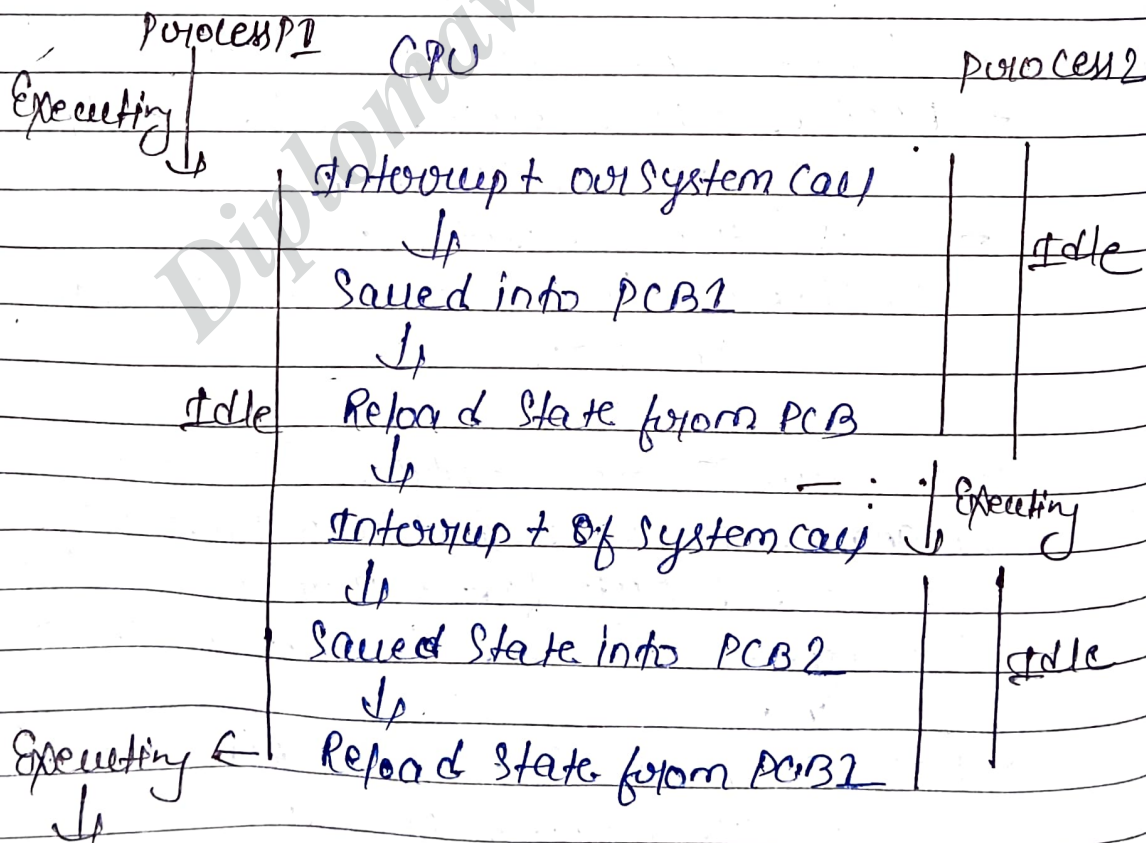 Process P1 CPU Process 2
Executing
Interrupt or System Call
Idle
Saved into PCB1
Idle Reload State from PCB
Executing
Interrupt of System call
Saved State into PCB2
Idle
Executing Reload State from PCB1